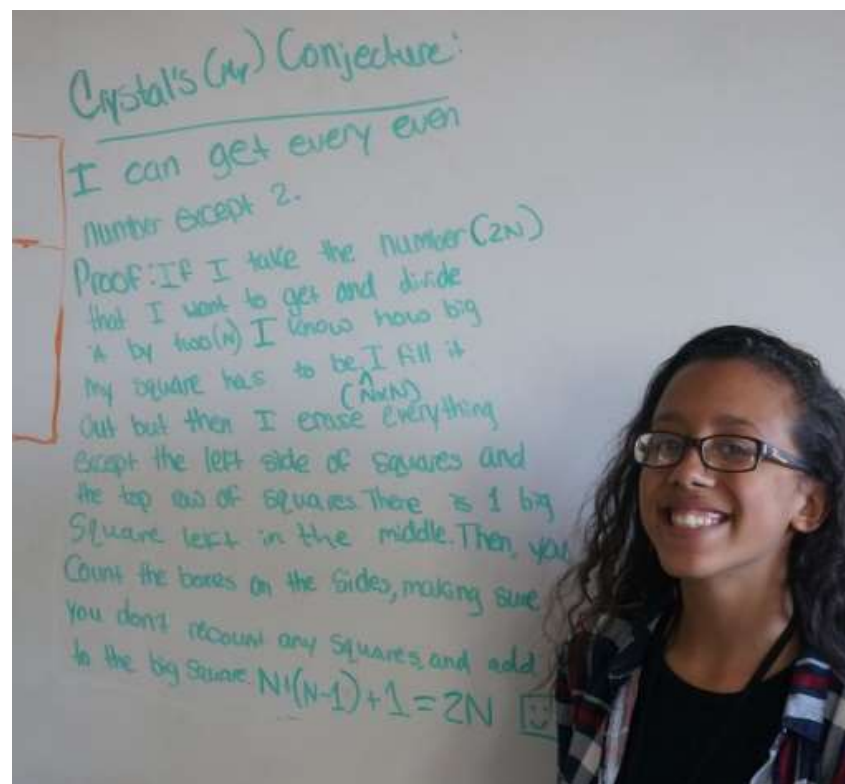 Crystal's (My) Conjecture:
I can get every even
number except 2.
Proof: If I take the number (2N)
that I want to get and divide
it by two(N) I know how big
my square has to be. I fill it
(NxN)
out but then I erase everything
except the left side of squares and
the top row of squares. There is 1 big
Square left in the middle. Then, you
Count the boxes on the sides, making sure
you don't recount any squares, and add
to the big square. N+(N-1)+1=2N